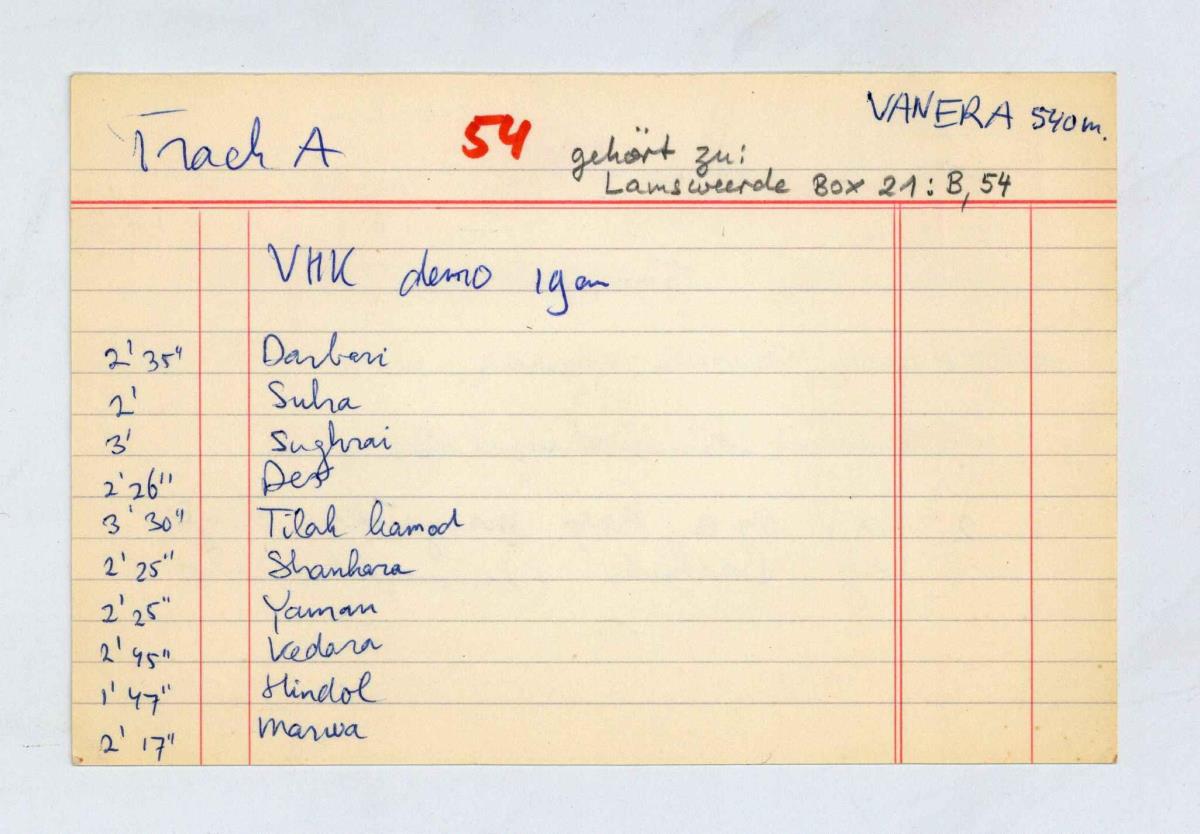 VANERA 540m.
Track A 54 gehört zu:
Lamsweerde Box 21: B, 54
VHK demo 19cm
2' 35" Darbari
2' Suha
3' Sughrai
2' 26" Des
3' 30" Tilak kamod
2' 25" Shankara
2' 25" Yaman
2' 45" Kedara
1' 47" Hindol
2' 17" Marwa